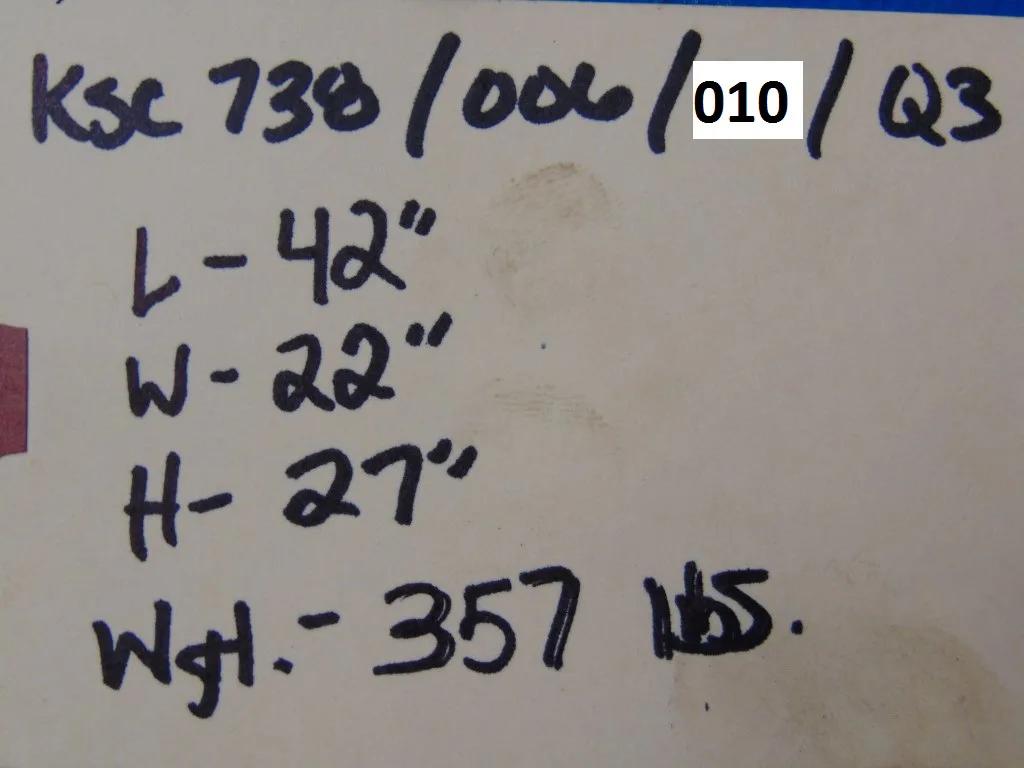 KSC 738/006/010/Q3
L - 42"
W - 22"
H - 27"
Wgt. - 357 lbs.